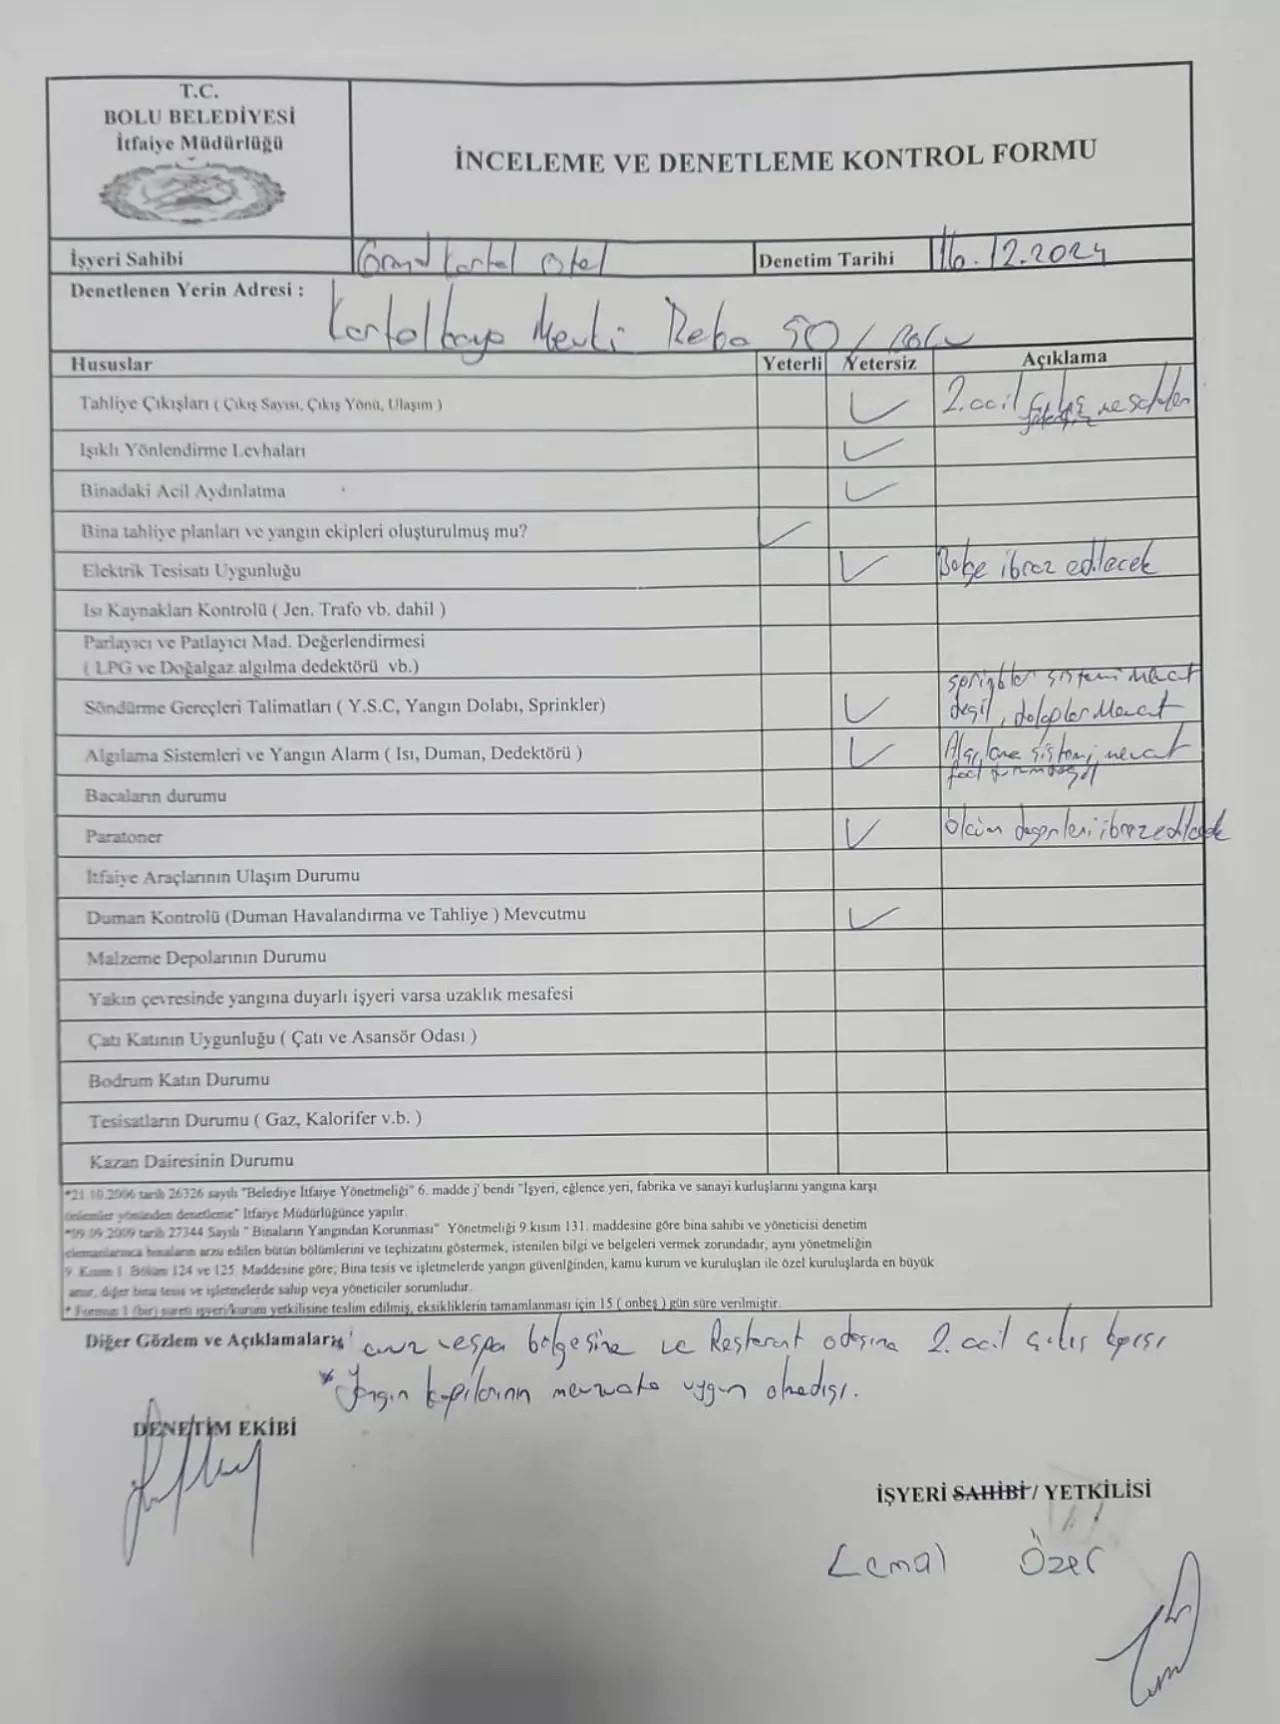 T.C.
BOLU BELEDİYESİ
İtfaiye Müdürlüğü
İNCELEME VE DENETLEME KONTROL FORMU
İşyeri Sahibi Grand Kartal Otel Denetim Tarihi 16.12.2024
Denetlenen Yerin Adresi : Kartalkaya Mevki Reba SO / Bolu
Hususlar Yeterli Yetersiz Açıklama
Tahliye Çıkışları ( Çıkış Sayısı, Çıkış Yönü, Ulaşım ) 2. acil çıkış mesafeleri
Işıklı Yönlendirme Levhaları
Binadaki Acil Aydınlatma
Bina tahliye planları ve yangın ekipleri oluşturulmuş mu?
Elektrik Tesisatı Uygunluğu Belge ibraz edilecek
Isı Kaynakları Kontrolü ( Jen. Trafo vb. dahil )
Parlayıcı ve Patlayıcı Mad. Değerlendirmesi
( LPG ve Doğalgaz algılma dedektörü vb.)
Söndürme Gereçleri Talimatları ( Y.S.C, Yangın Dolabı, Sprinkler) sprinkler sistemi mevcut
değil, dolaplar mevcut
Algılama Sistemleri ve Yangın Alarm ( Isı, Duman, Dedektörü ) Algılama sistemi mevcut
Bacaların durumu
Paratoner ölçüm değerleri ibraz edilecek
İtfaiye Araçlarının Ulaşım Durumu
Duman Kontrolü (Duman Havalandırma ve Tahliye ) Mevcutmu
Malzeme Depolarının Durumu
Yakın çevresinde yangına duyarlı işyeri varsa uzaklık mesafesi
Çatı Katının Uygunluğu ( Çatı ve Asansör Odası )
Bodrum Katın Durumu
Tesisatların Durumu ( Gaz, Kalorifer v.b. )
Kazan Dairesinin Durumu
*21.10.2006 tarih 26326 sayılı "Belediye İtfaiye Yönetmeliği" 6. madde j' bendi "İşyeri, eğlence yeri, fabrika ve sanayi kurluşlarını yangına karşı
önlemler yönünden denetleme" İtfaiye Müdürlüğünce yapılır.
*09.09.2009 tarih 27344 Sayılı " Binaların Yangından Korunması" Yönetmeliği 9.kısım 131. maddesine göre bina sahibi ve yöneticisi denetim
elemanlarınca binaların arzu edilen bütün bölümlerini ve teçhizatını göstermek, istenilen bilgi ve belgeleri vermek zorundadır, aynı yönetmeliğin
9. Kısım 1. Bölüm 124 ve 125. Maddesine göre; Bina tesis ve işletmelerde yangın güvenlğinden, kamu kurum ve kuruluşları ile özel kuruluşlarda en büyük
amir, diğer bina tesis ve işletmelerde sahip veya yöneticiler sorumludur.
* Formun 1 (bir) sureti işyeri/kurum yetkilisine teslim edilmiş, eksikliklerin tamamlanması için 15 ( onbeş ) gün süre verilmiştir.
Diğer Gözlem ve Açıklamalar: ve spa bölgesine ve Restorant odasına 2. acil çıkış kapısı
* Yangın kapılarının mevzuata uygun olmadığı.
DENETİM EKİBİ
İŞYERİ SAHİBİ / YETKİLİSİ
Cemal Özer